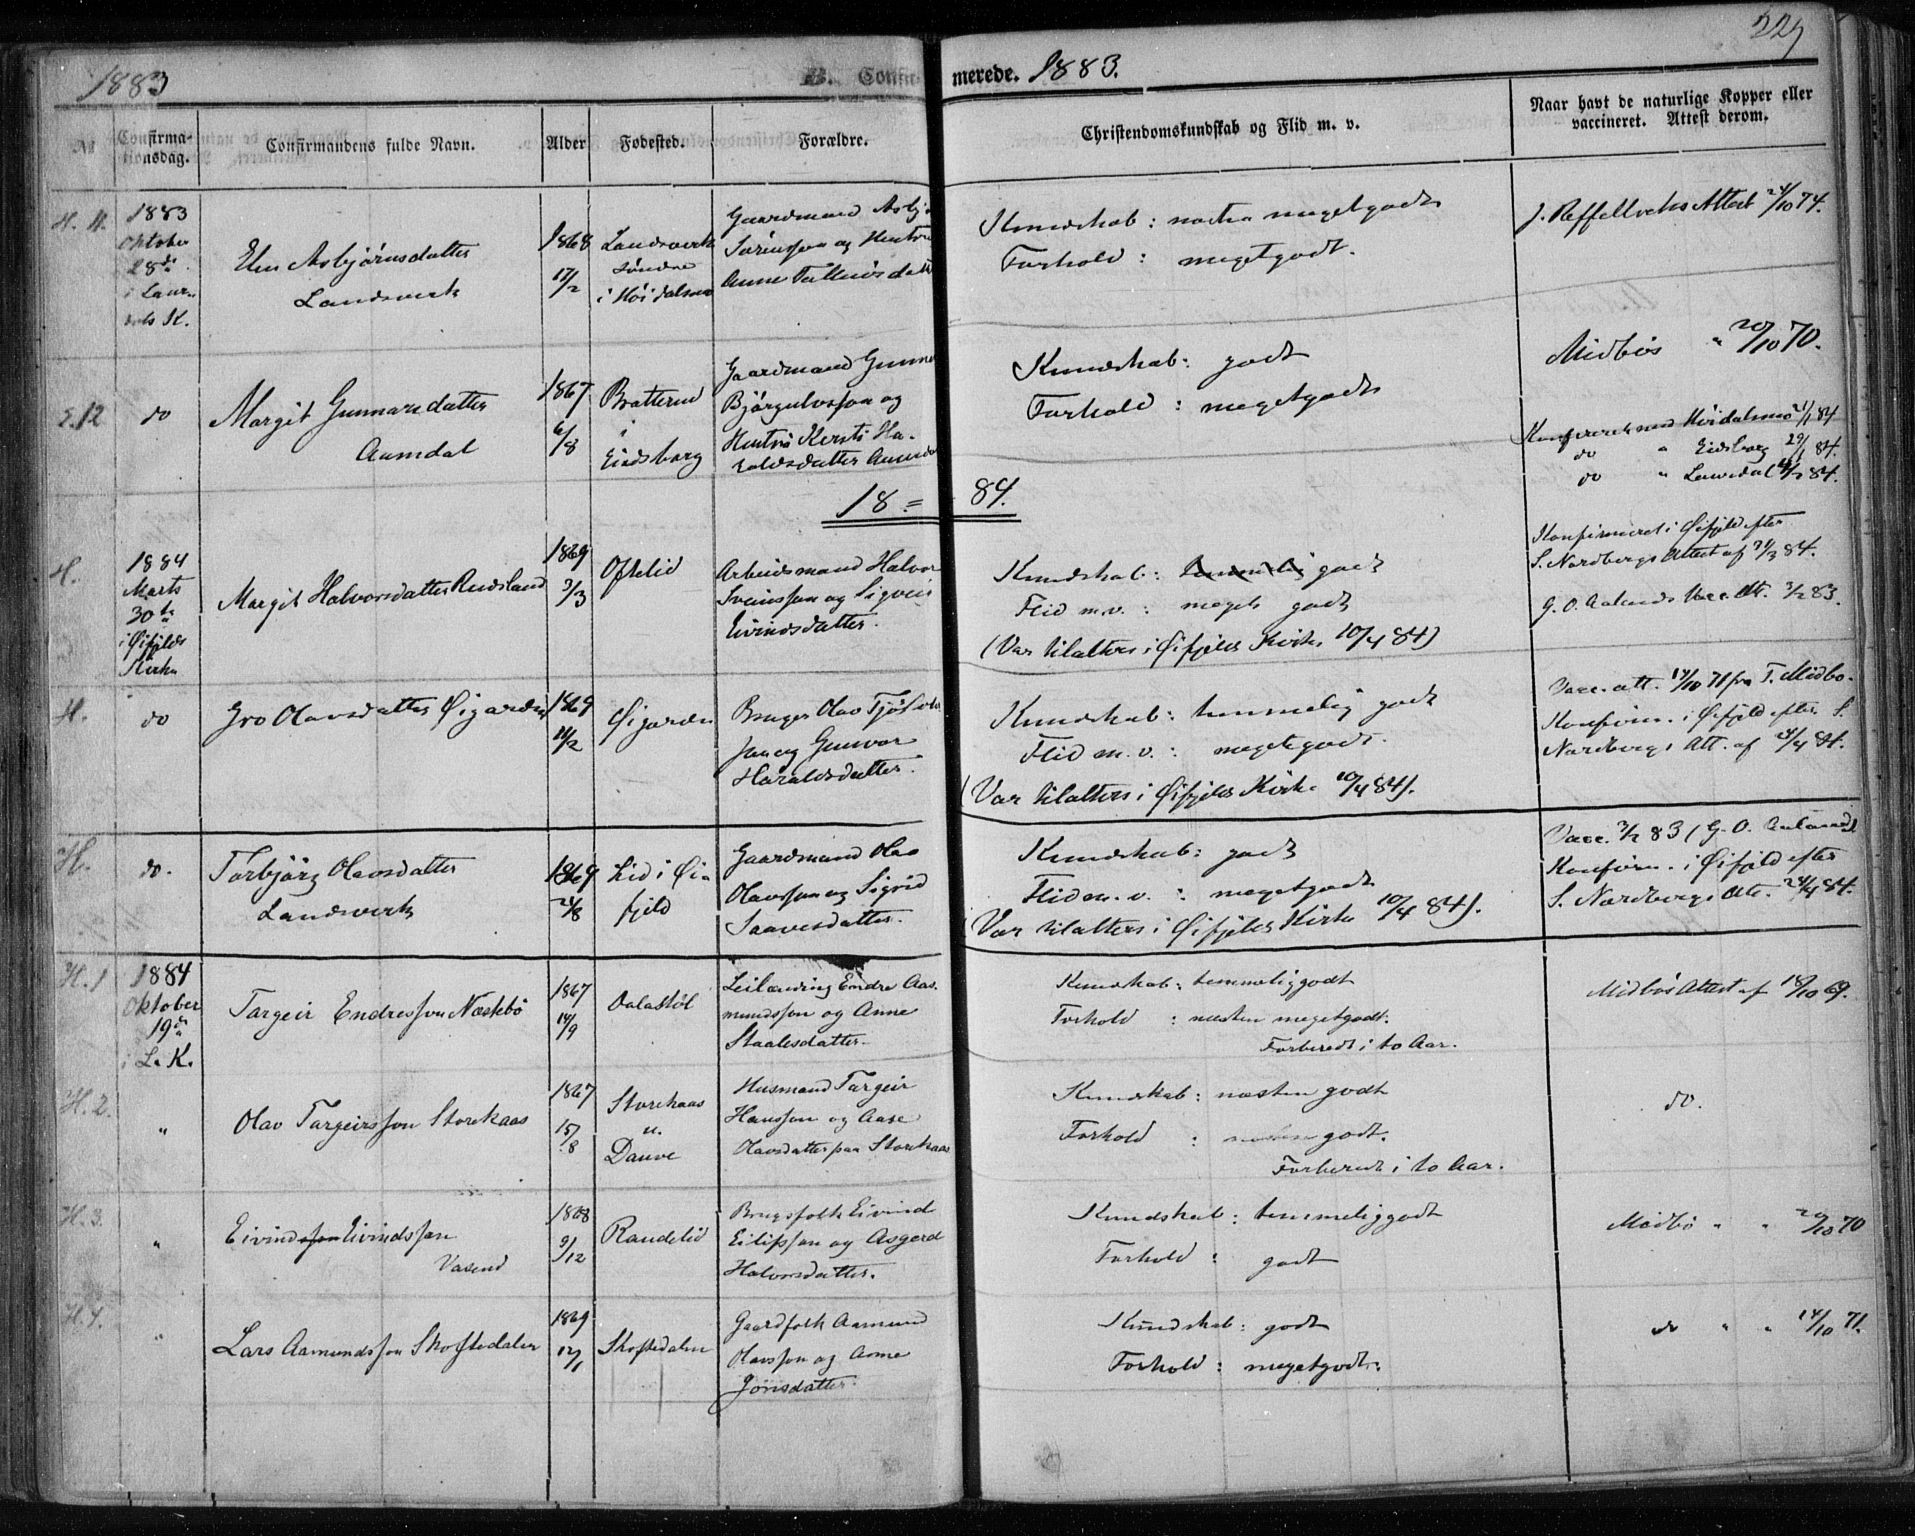 1883
B. Confirmerede. 1883.
229
№
Confirmationsdag.
Confirmandens fulde Navn.
Alder
Fødested.
Forældre.
Christendomskundskab og Flid m. v.
Naar havt de naturlige Kopper eller
vaccineret. Attest derom.
H. 11.
1883
Oktober
28de
i Laur.
dals K.
Elen Asbjørnsdatter
Landsverk
1868
17/2
Landsverk
søndre
i Høidalsmo
Gaardmand Asbjø
Sørensson og Hustru
Anne Talleivsdatt
Kundskab: næsten megetgodt
Forhold: megetgodt.
J. Reffelbeks Attest 24/10 74.
E. 12
do
Margit Gunnarsdatter
Aamdal
1867
6/8
Bratterud
i
Eidsborg
Gaardmand Gunnar
Bjørgulvsson og
Hustru Kersti Ha-
raldsdatter Aamdal
Kundskab: godt
Forhold: megetgodt
Midbøs " 20/10 70.
Konfereret med Høidalsmo 21/1 84
do " Eidsborg 29/1 84.
do " Laurdal 4/2 84.
18 = 84.
H.
1884
Marts
30te
i Øifjelds
Kirke
Margit Halvorsdatter Rudsland
1869
3/3
Oftelid
Arbeidsmand Halvor
Sveinsson og Sigveig
Eivindsdatter.
Kundskab: temmelig godt
Flid m.v.: meget godt
(Var tilalters i Øifjelds Kirke 10/4 84)
Konfirmeret i Øifjeld efter
S. Nordbergs Attest af 24/3 84.
G. O. Aalands Vacc. Att. 3/2 83.
H.
do
Gro Olavsdatter Øigarden
1869
14/2
Øigarden
Bruger Olav Tjøstolvs
søn og Gunvor
Haraldsdatter.
Kundskab: temmelig godt
Flid m. v.: megetgodt.
(Var tilalters i Øifjelds Kirke 10/4 84).
Vacc. att. 14/10 71 fra T. Midbø.
Konfirm. i Øifjeld efter S.
Nordbergs Att. af 24/4 84.
H.
do.
Torbjørg Olavsdatter
Landsverk
1869
24/8
Lid i Øi-
fjeld
Gaardmand Olav
Olavsson og Sigrid
Saavesdatter.
Kundskab: godt
Flid m. v.: megetgodt
(Var tilalters i Øifjelds Kirke 10/4 84).
Vacc. 3/2 83 (G. O. Aaland)
Konfirm. i Øifjeld efter
S. Nordbergs Att. 24/4 84.
H. 1
1884
Oktober
19de
i L. K.
Targeir Endresson Næstebø
1867
14/9
Dalastøl
Leilænding Endre Aas-
mundsson og Anne
Staalesdatter.
Kundskab: temmeliggodt
Forhold: næsten megetgodt.
Forberedt i to Aar.
Midbøs Attest af 18/10 69.
H. 2.
"
Olav Targeirsson Storekaas
1867
15/8
Storekaas
u.
Dauve
Husmand Targeir
Hansson og Aase
Olavsdatter paa Storekaas
Kundskab: næsten godt
Forhold: næsten godt.
Forberedt i to Aar.
do.
H. 3.
"
Eivindsson Eivindsson
Vasend
1868
9/12
Randelid
Brugsfolk Eivind
Eilifsson og Asgerd
Halvorsdatter.
Kundskab: temmeliggodt
Forhold: godt
Midbø " " 20/10 70
H. 4.
"
Lars Aamundsson Skoftedalen
1869
12/1
Skoftedalen
Gaardfolk Aamund
Olavsson og Anne
Jonsdatter.
Kundskab: godt
Forhold: megetgodt.
do " " 14/10 71.